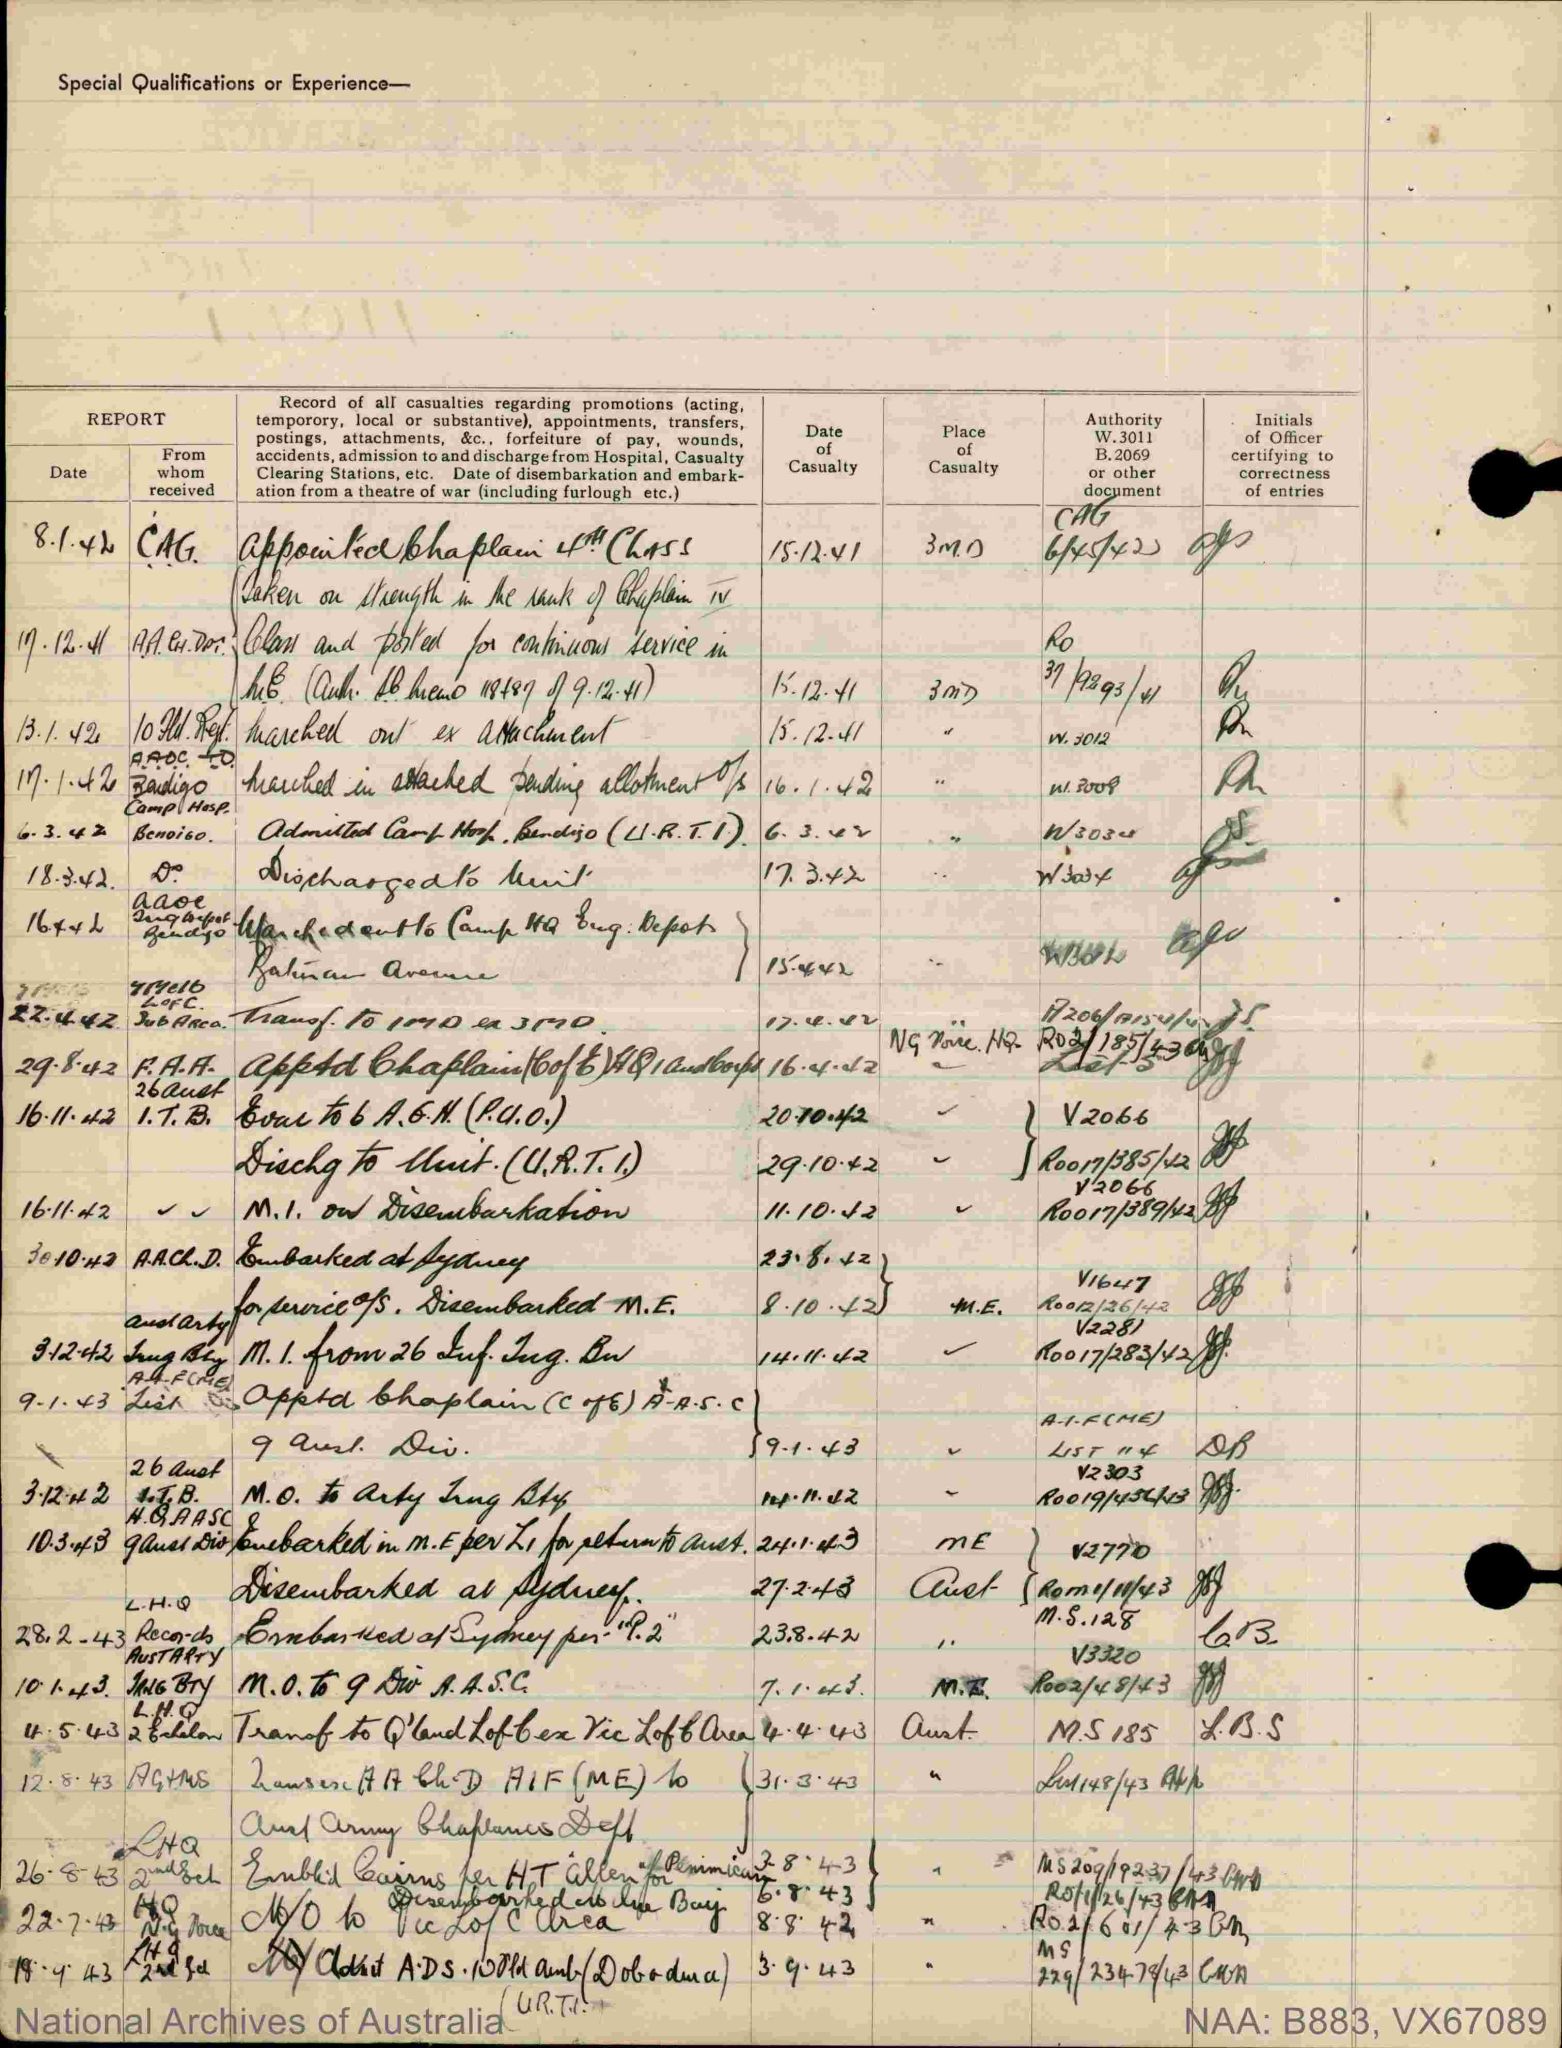 Special Qualifications or Experience—
REPORT
Date
From whom received
Record of all casualties regarding promotions (acting,
temporory, local or substantive), appointments, transfers,
postings, attachments, &c., forfeiture of pay, wounds,
accidents, admission to and discharge from Hospital, Casualty
Clearing Stations, etc. Date of disembarkation and embark-
ation from a theatre of war (including furlough etc.)
Date of Casualty
Place of Casualty
Authority W.3011 B.2069 or other document
Initials of Officer certifying to correctness of entries
CAG
8.1.42 C.A.G. Appointed Chaplain 4th Class 15.12.41 3 M.D 6/45/42
Taken on strength in the rank of Chaplain IV
17.12.41 A.A.Ch.Dpt. Class and posted for continuous service in RO
M.E. (Auth. memo of 9.12.41) 15.12.41 3 MD 37/9293/41
13.1.42 10 Fld. Regt. Marched out ex attachment 15.12.41 " W.3012
A.A.O.C. T.D.
17.1.42 Bendigo Marched in attached pending allotment o/s 16.1.42 " W.3008
Camp Hosp.
6.3.42 Bendigo. Admitted Camp Hosp. Bendigo (U.R.T.I). 6.3.42 " W3034
18.3.42. Do Discharged to Unit 17.3.42 " W3034
AAOC
Trng Depot
16.4.42 Bendigo Marched out to Camp HQ Eng. Depot
Batman Avenue 15.4.42 "
L of C.
22.4.42 Sub Area. Transf. to 1 MD ex 3 MD. 17.4.42 "
NG Force. HQ. RO2/185/43
29.8.42 F.A.A. Apptd Chaplain (C of E) HQ 1 Aust Corps 16.4.42 List
26 Aust
16.11.42 I.T.B. Evac to 6 A.G.H. (P.U.O.) 20.10.42 ✓ V2066
Dischg to Unit. (U.R.T.I.) 29.10.42 ✓ Roo17/385/42
V2066
16.11.42 ✓ ✓ M.I. on Disembarkation 11.10.42 ✓ Roo17/389/42
30.10.42 A.A.Ch.D. Embarked at Sydney 23.8.42
V1647
for service o/s. Disembarked M.E. 8.10.42 M.E. Roo12/26/42
Aust Arty V2281
3.12.42 Trng Bty M.I. from 26 Inf. Trg. Bn 14.11.42 ✓ Roo17/283/42
A.I.F (ME)
9.1.43 List Apptd Chaplain (C of E) A.A.S.C
A.I.F (ME)
9 Aust. Div. 9.1.43 ✓ LIST "4 DB
26 Aust V2303
3.12.42 I.T.B. M.O. to Arty Trng Bty 14.11.42 ✓ Roo19/436/43
H.Q. A A S C
10.3.43 9 Aust Div Embarked in M.E per L1 for return to Aust. 24.1.43 ME V2770
Disembarked at Sydney. 27.2.43 Aust
L.H.Q M.S.128
28.2.43 Records Embarked at Sydney per "P.2" 23.8.42 " C.B.
AUST ARTY V3320
10.1.43. TRNG BTY M.O. to 9 Div A.A.S.C. 7.1.43. M.E. Roo2/48/43
L.H.Q
4.5.43 2 Echelon Transf to Q'land L of C ex Vic L of C Area 4.4.43 Aust. M.S 185 L.B.S
12.8.43 AG+MS Transf ex A A Ch. D AIF (ME) to 31.3.43 " List 148/43
Aust Army Chaplains Dept
LHQ
26.8.43 2nd Ech Embkd Cairns per HT "Allen" for Pemmican 3.8.43 " MS209/19237/43
Disembarked Milne Bay 6.8.43 RO/1/26/43
HQ
22.7.43 N.G Force M/O to Vic L of C Area 8.8.42 " RO2/601/43
LHQ MS
18.9.43 2nd Ed Admit A.D.S. 10 Fld Amb (Dobodura) 3.9.43 " 229/23478/43
(U.R.T.I.
National Archives of Australia
NAA: B883, VX67089